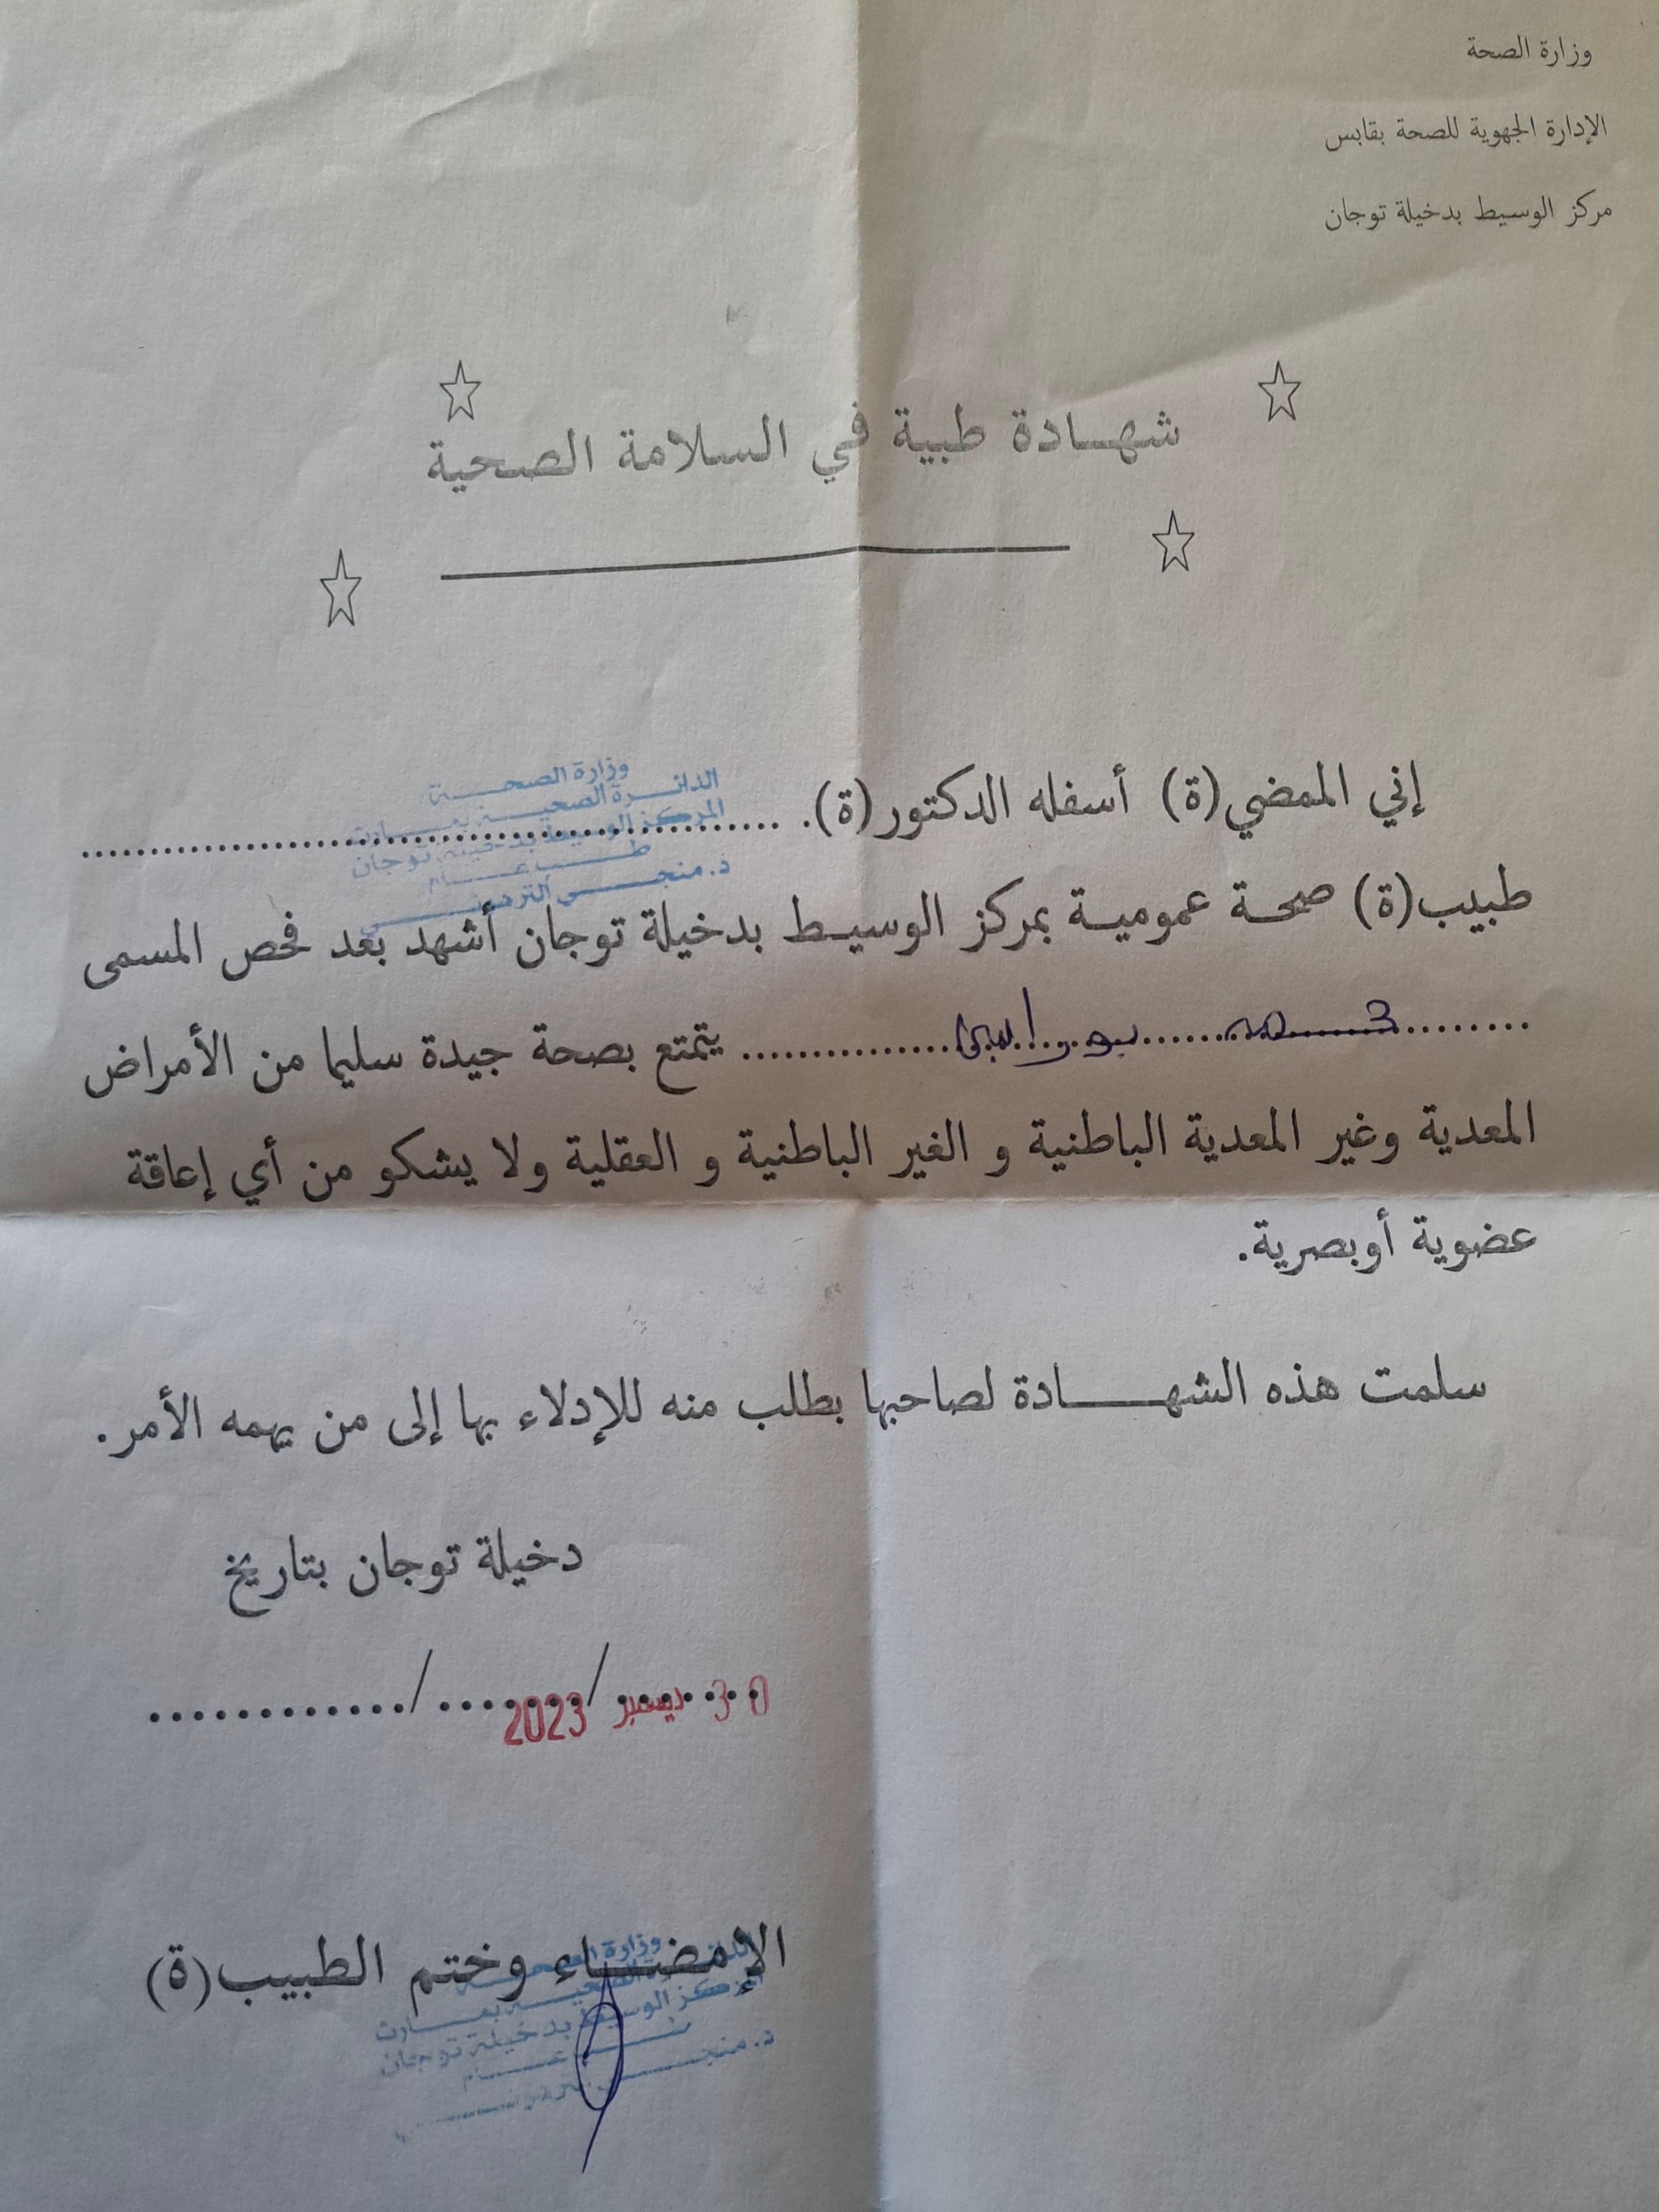 وزارة الصحة
الإدارة الجهوية للصحة بقابس
مركز الوسيط بدخيلة توجان
شهادة طبية في السلامة الصحية
إني الممضي (ة) أسفله الدكتور (ة). ..........................................
وزارة الصحة
الدائرة الصحية بمارث
المركز الوسيط بدخيلة توجان
طب عام
د. منجي
طبيب (ة) صحة عمومية بمركز الوسيط بدخيلة توجان أشهد بعد فحص المسمى
.................................... يتمتع بصحة جيدة سليما من الأمراض
المعدية وغير المعدية الباطنية و الغير الباطنية و العقلية ولا يشكو من أي إعاقة
عضوية أوبصرية.
سلمت هذه الشهادة لصاحبها بطلب منه للإدلاء بها إلى من يهمه الأمر.
دخيلة توجان بتاريخ
30 ديسمبر 2023
الإمضاء وختم الطبيب (ة)
وزارة الصحة
الدائرة الصحية بمارث
المركز الوسيط بدخيلة توجان
طب عام
د. منجي